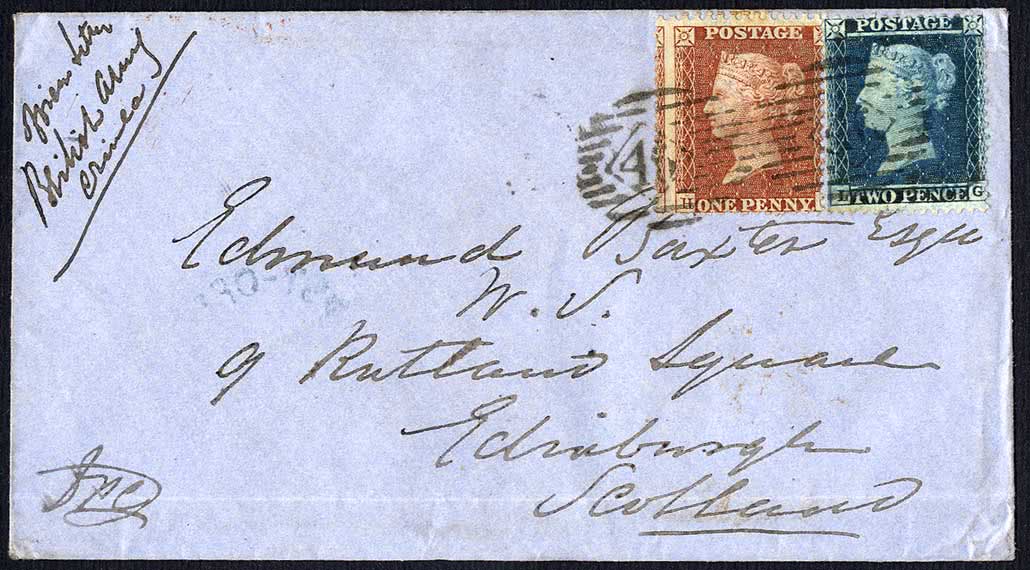 British Army
Crimea
POSTAGE
ONE PENNY
H
POSTAGE
TWO PENCE
L G
4
Edmund Baxter Esqre
W. S.
9 Rutland Square
Edinburgh
Scotland